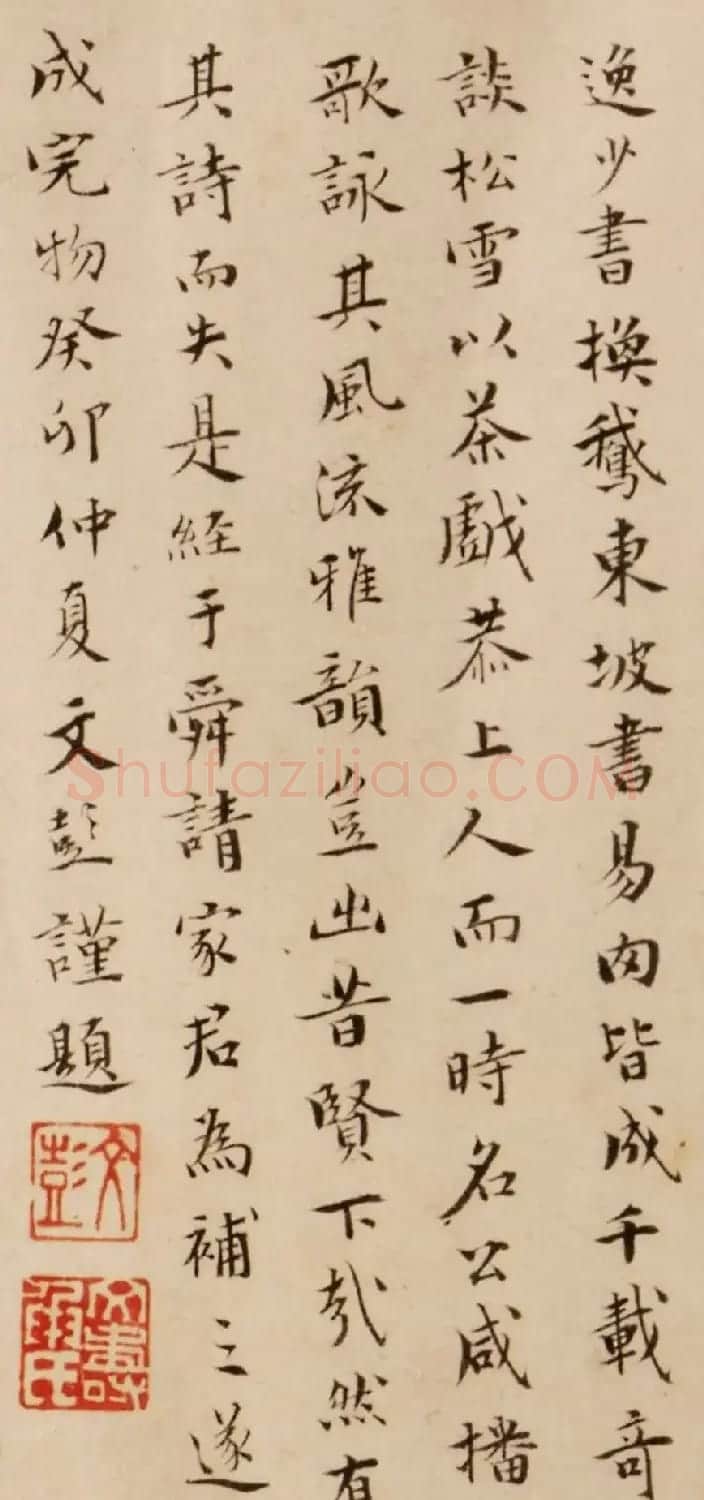 逸少書換鵝東坡書易肉皆成千載奇
談松雪以茶戲恭上人而一時名公咸播
歌詠其風流雅韻豈出昔賢下哉然有
其詩而失是経于舜請家君為補之遂
成完物癸卯仲夏文彭謹題
文彭
文壽承氏
Shufaziliao.COM